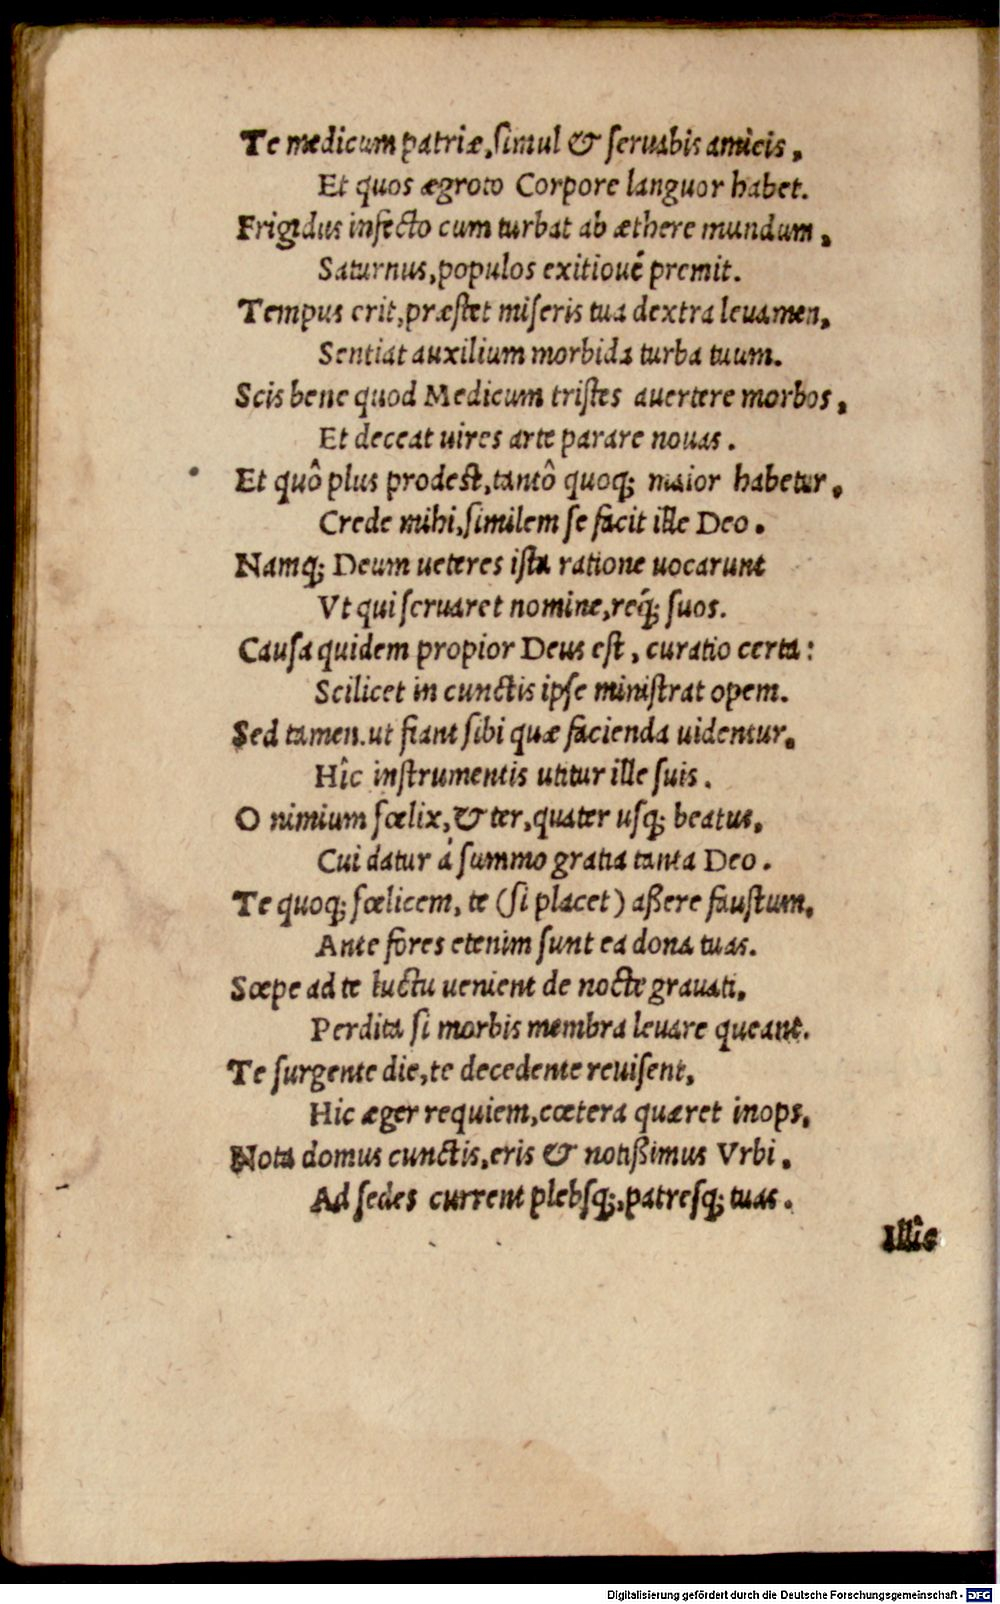 Te medicum patriæ, simul & seruabis amicis,
Et quos ægroto Corpore languor habet.
Frigidus infecto cum turbat ab æthere mundum,
Saturnus, populos exitiouè premit.
Tempus erit, præstet miseris tua dextra leuamen,
Sentiat auxilium morbida turba tuum.
Scis bene quod Medicum tristes auertere morbos,
Et deceat uires arte parare nouas.
Et quô plus prodest, tantô quoq; maior habetur,
Crede mihi, similem se facit ille Deo.
Namq; Deum ueteres ista ratione uocarunt
Vt qui seruaret nomine, req́; suos.
Causa quidem propior Deus est, curatio certa:
Scilicet in cunctis ipse ministrat opem.
Sed tamen. ut fiant sibi quæ facienda uidentur,
Hîc instrumentis utitur ille suis.
O nimium fœlix, & ter, quater usq; beatus,
Cui datur á summo gratia tanta Deo.
Te quoq; fœlicem, te (si placet) aßere faustum,
Ante fores etenim sunt ea dona tuas.
Sœpe ad te luctu uenient de nocte grauati,
Perdita si morbis membra leuare queant.
Te surgente die, te decedente reuisent,
Hic æger requiem, cœtera quæret inops,
Nota domus cunctis, eris & notißimus Vrbi.
Ad sedes current plebsq;, patresq; tuas.
Illîc
Digitalisierung gefördert durch die Deutsche Forschungsgemeinschaft - DFG